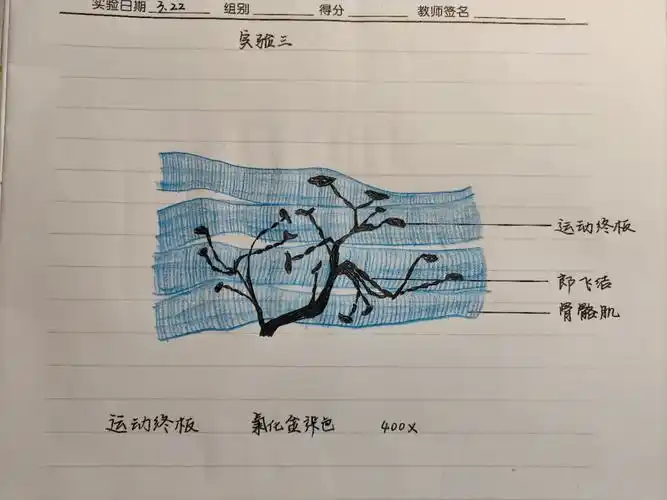 实验日期 3.22 组别 得分 教师签名
实验三
运动终板
郎飞结
骨骼肌
运动终板 氯化金染色 400X